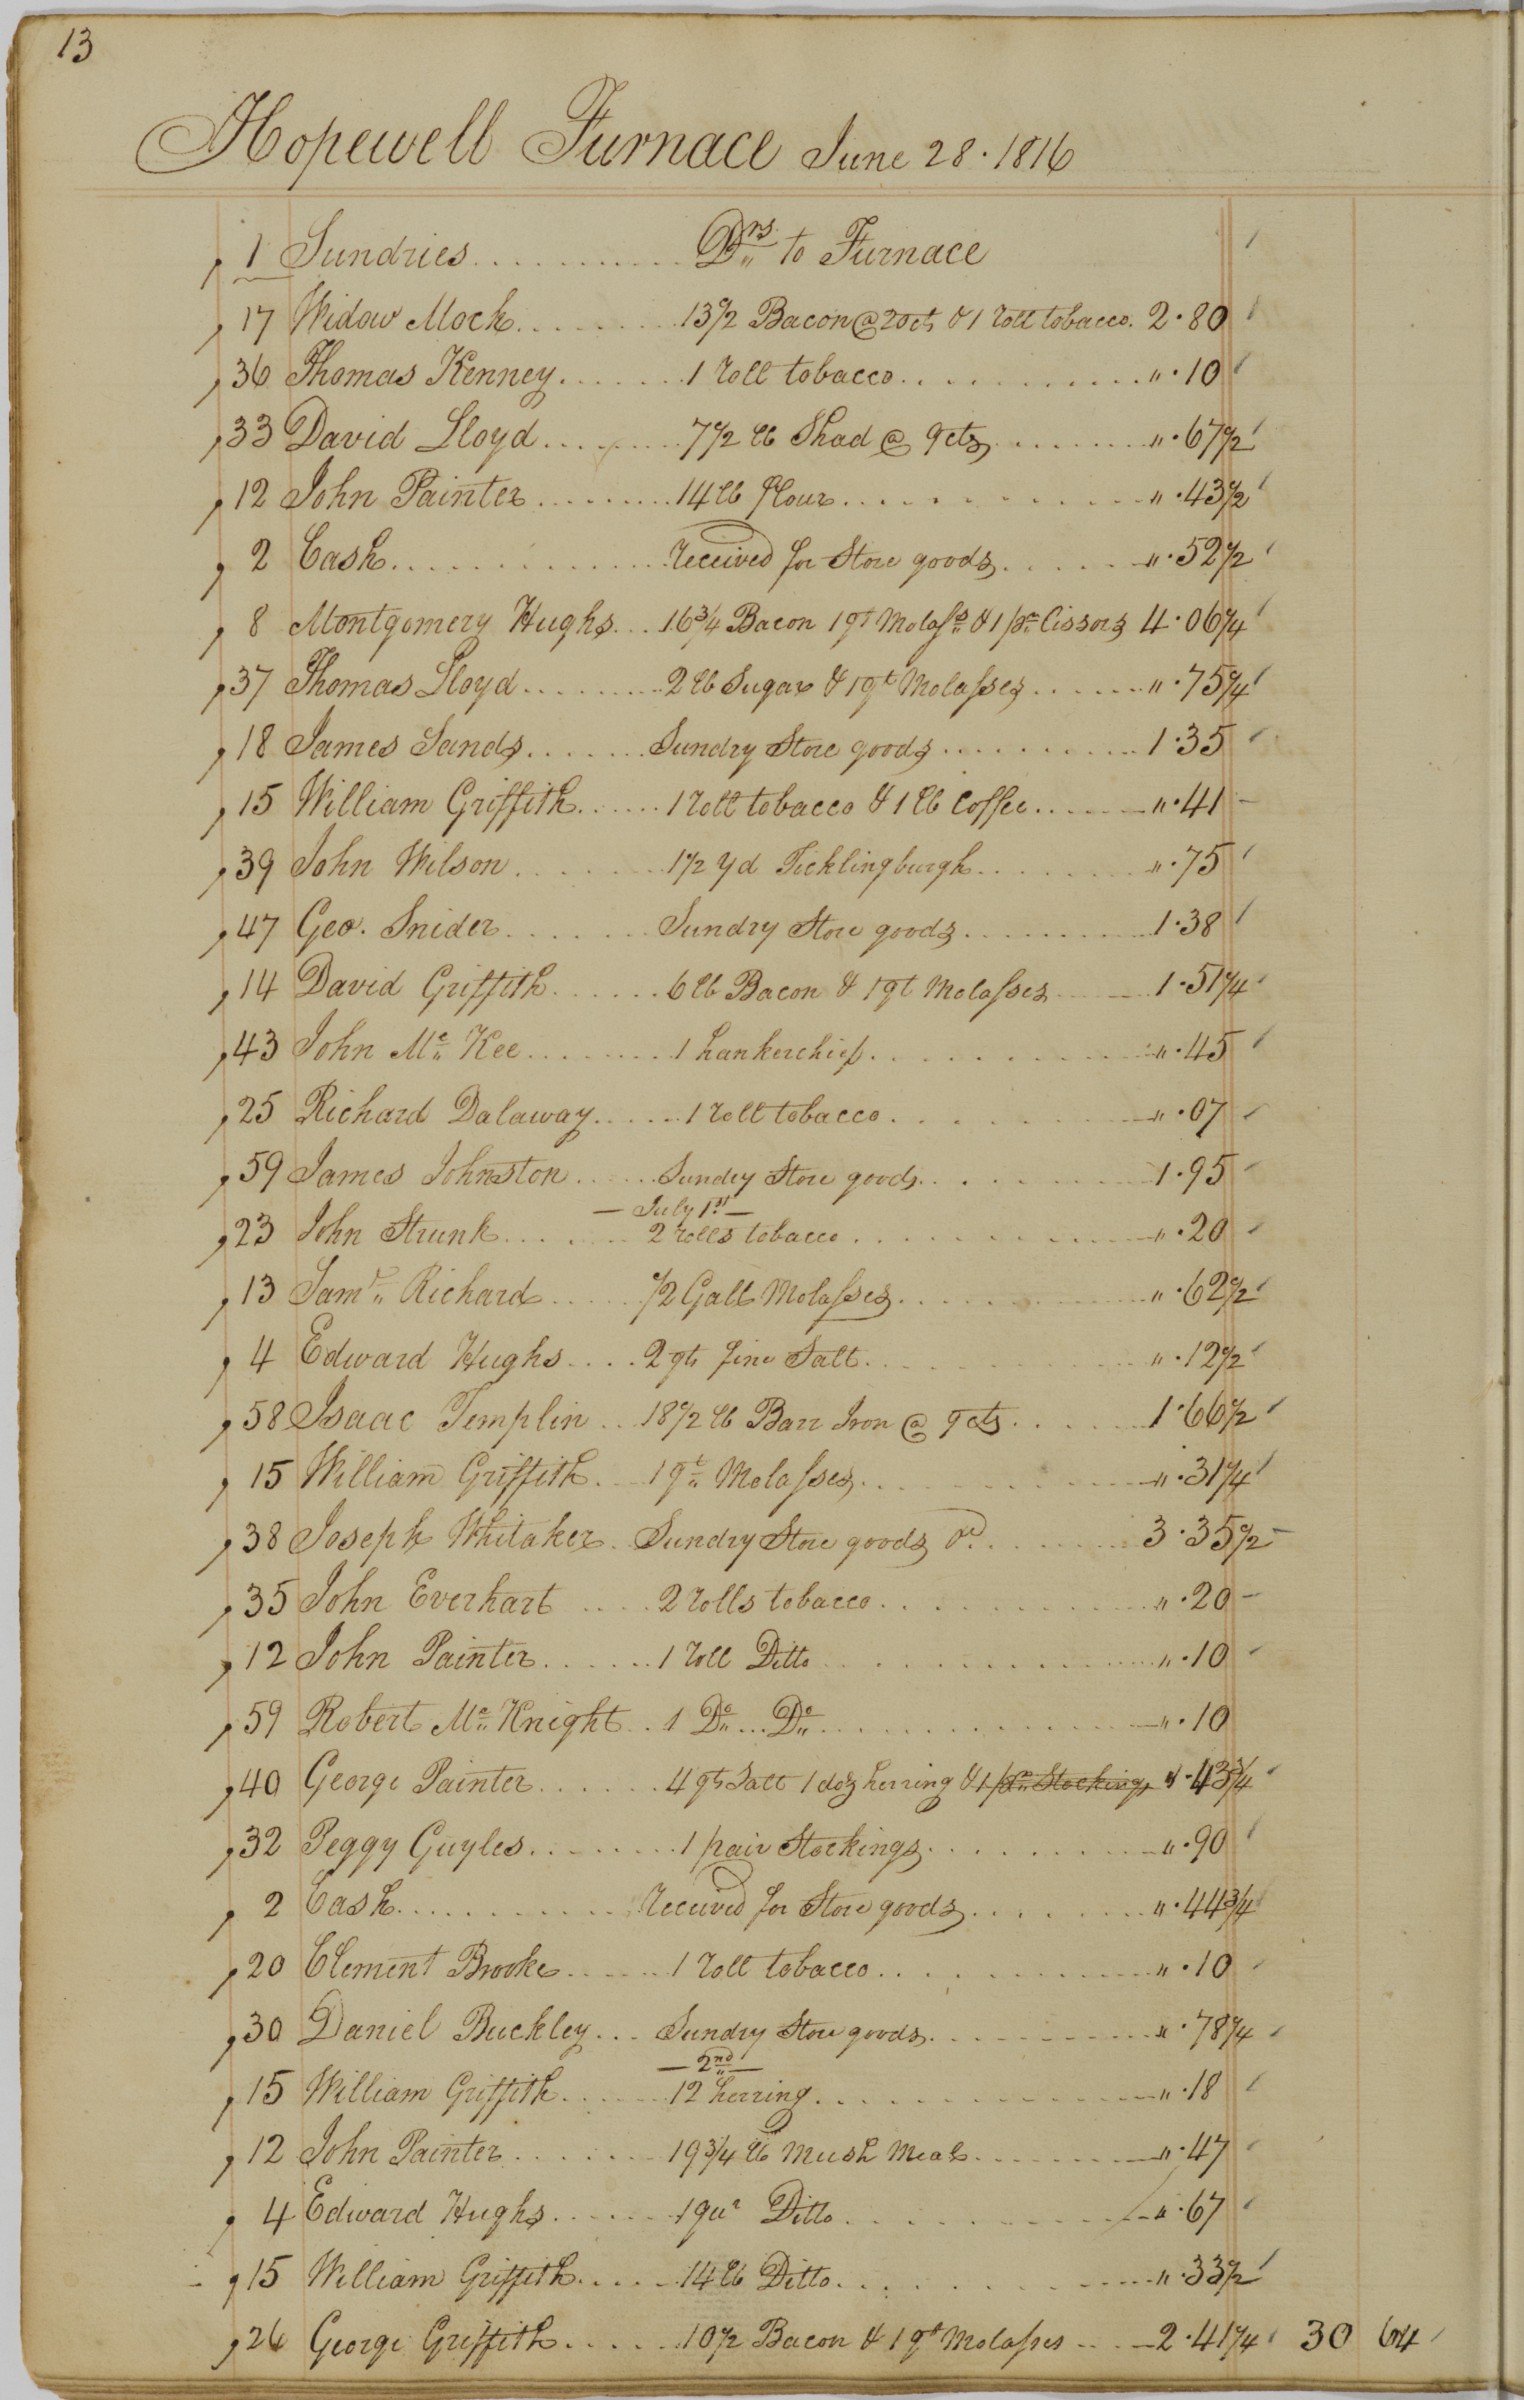 13
Hopewell Furnace June 28. 1816
1 Sundries ........... Drs to Furnace
17 Widow Mock ......... 13 1/2 Bacon @ 20 cts & 1 roll tobacco. 2.80
36 Thomas Kenney ....... 1 roll tobacco ............ " .10
33 David Lloyd ........ 7 1/2 lb Shad @ 9 cts ........ " .67 1/2
12 John Painter ......... 14 lb flour ............ " .43 1/2
2 Cash .............. received for Store goods ...... " .52 1/2
8 Montgomery Hughs ... 16 3/4 Bacon 1 qt Molass & 1 pr Cissors 4.06 1/4
37 Thomas Lloyd ......... 2 lb Sugar & 1 qt Molasses ...... " .75 1/4
18 James Sands ....... Sundry Store goods .......... 1.35
15 William Griffith ...... 1 roll tobacco & 1 lb Coffee ...... " .41
39 John Wilson ....... 1 1/2 yd Ticklingburgh ........ " .75
47 Geo. Snider ....... Sundry Store goods ......... 1.38
14 David Griffith ...... 6 lb Bacon & 1 qt Molasses ...... 1.51 1/4
43 John Mc Kee ........ 1 hankerchief ............ " .45
25 Richard Dalaway ...... 1 roll tobacco .......... " .07
59 James Johnston ...... Sundry Store goods .......... 1.95
— July 1st —
23 John Strunk ....... 2 rolls tobacco ............ " .20
13 Saml Richard ...... 1/2 Gall Molasses ........... " .62 1/2
4 Edward Hughs .... 2 qts fine Salt ............ " .12 1/2
58 Isaac Templin ... 18 1/2 lb Barr Iron @ 9 cts ...... 1.66 1/2
15 William Griffith ... 1 qt Molasses ............ " .31 1/4
38 Joseph Whitaker . Sundry Store goods ........ 3.35 1/2
35 John Everhart .... 2 rolls tobacco ........... " .20
12 John Painter ...... 1 roll Ditto ............ " .10
59 Robert Mc Knight .. 1 Do ... Do ............. " .10
40 George Painter ...... 4 qts Salt 1 doz herring & 1 pr Stockings " .43 3/4
32 Peggy Guyles ........ 1 pair Stockings .......... " .90
2 Cash ........... received for Store goods ........ " .44 3/4
20 Clement Brooke ...... 1 roll tobacco .......... " .10
30 Daniel Buckley ... Sundry Store goods .......... " .78 1/4
— 2nd —
15 William Griffith ...... 12 herring ............. " .18
12 John Painter ....... 19 3/4 lb Mush Meal ......... " .47
4 Edward Hughs ...... 1 qur Ditto .......... " .67
15 William Griffith ..... 14 lb Ditto .......... " .33 1/2
26 George Griffith ...... 10 1/2 Bacon & 1 qt Molasses .... 2.41 1/4 30 64